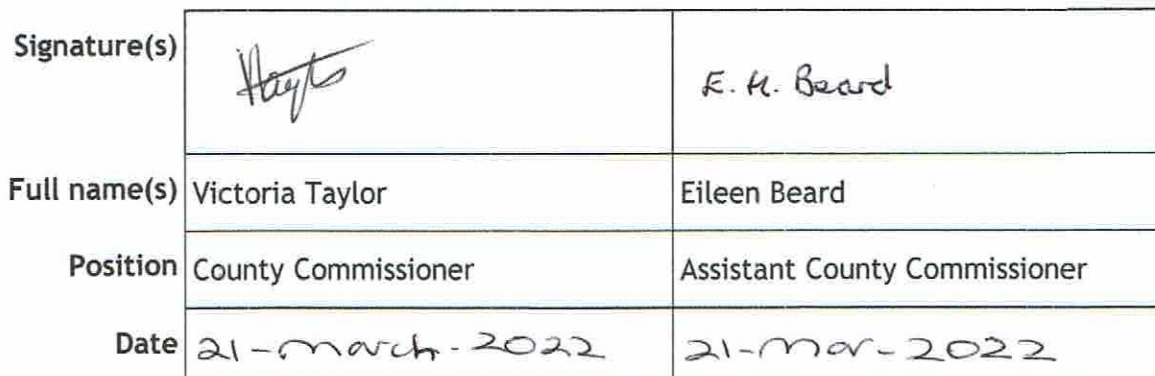 Signature(s) E. H. Beard
Full name(s) Victoria Taylor Eileen Beard
Position County Commissioner Assistant County Commissioner
Date 21-March-2022 21-Mar-2022